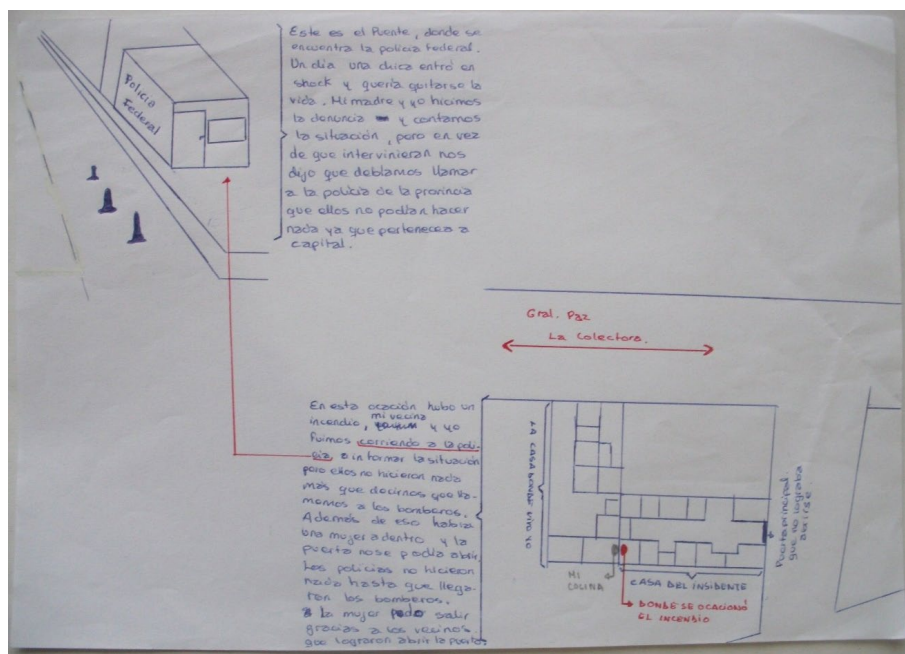 Policia
Federal
Este es el Puente, donde se
encuentra la policia federal.
Un dia una chica entró en
shock y quería quitarse la
vida. Mi madre y yo hicimos
la denuncia y contamos
la situación, pero en vez
de que intervinieran nos
dijo que debíamos llamar
a la policia de la provincia
que ellos no podían hacer
nada ya que pertenecen a
capital.
Gral. Paz
La Colectora.
En esta ocación hubo un
incendio, mi vecina y yo
fuimos corriendo a la poli-
cia, a informar la situación
pero ellos no hicieron nada
más que decirnos que lla-
memos a los bomberos.
Además de eso había
una mujer adentro y la
puerta no se podía abrir.
Los policias no hicieron
nada hasta que llega-
ron los bomberos.
La mujer pudo salir
gracias a los vecinos
que lograron abrir la puerta
LA CASA DONDE VIVO YO
MI
COCINA
CASA DEL INSIDENTE
DONDE SE OCACIONÓ
EL INCENDIO
Puerta principal.
que no lograba
abrirse.